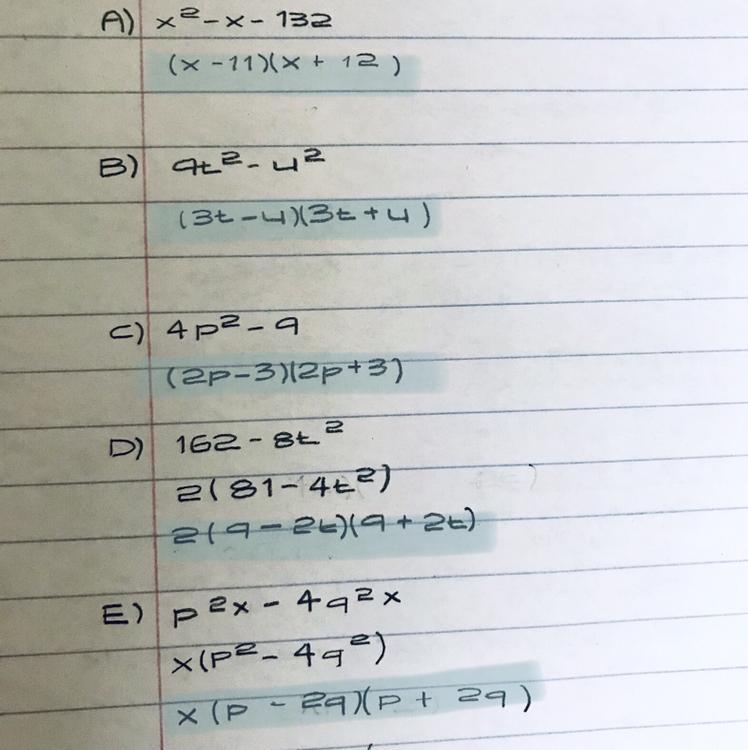 A) x² - x - 132
(x - 11)(x + 12)
B) 9t² - u²
(3t - u)(3t + u)
C) 4p² - 9
(2p - 3)(2p + 3)
D) 162 - 8t²
2(81 - 4t²)
2(9 - 2t)(9 + 2t)
E) p²x - 4q²x
x(p² - 4q²)
x(p - 2q)(p + 2q)